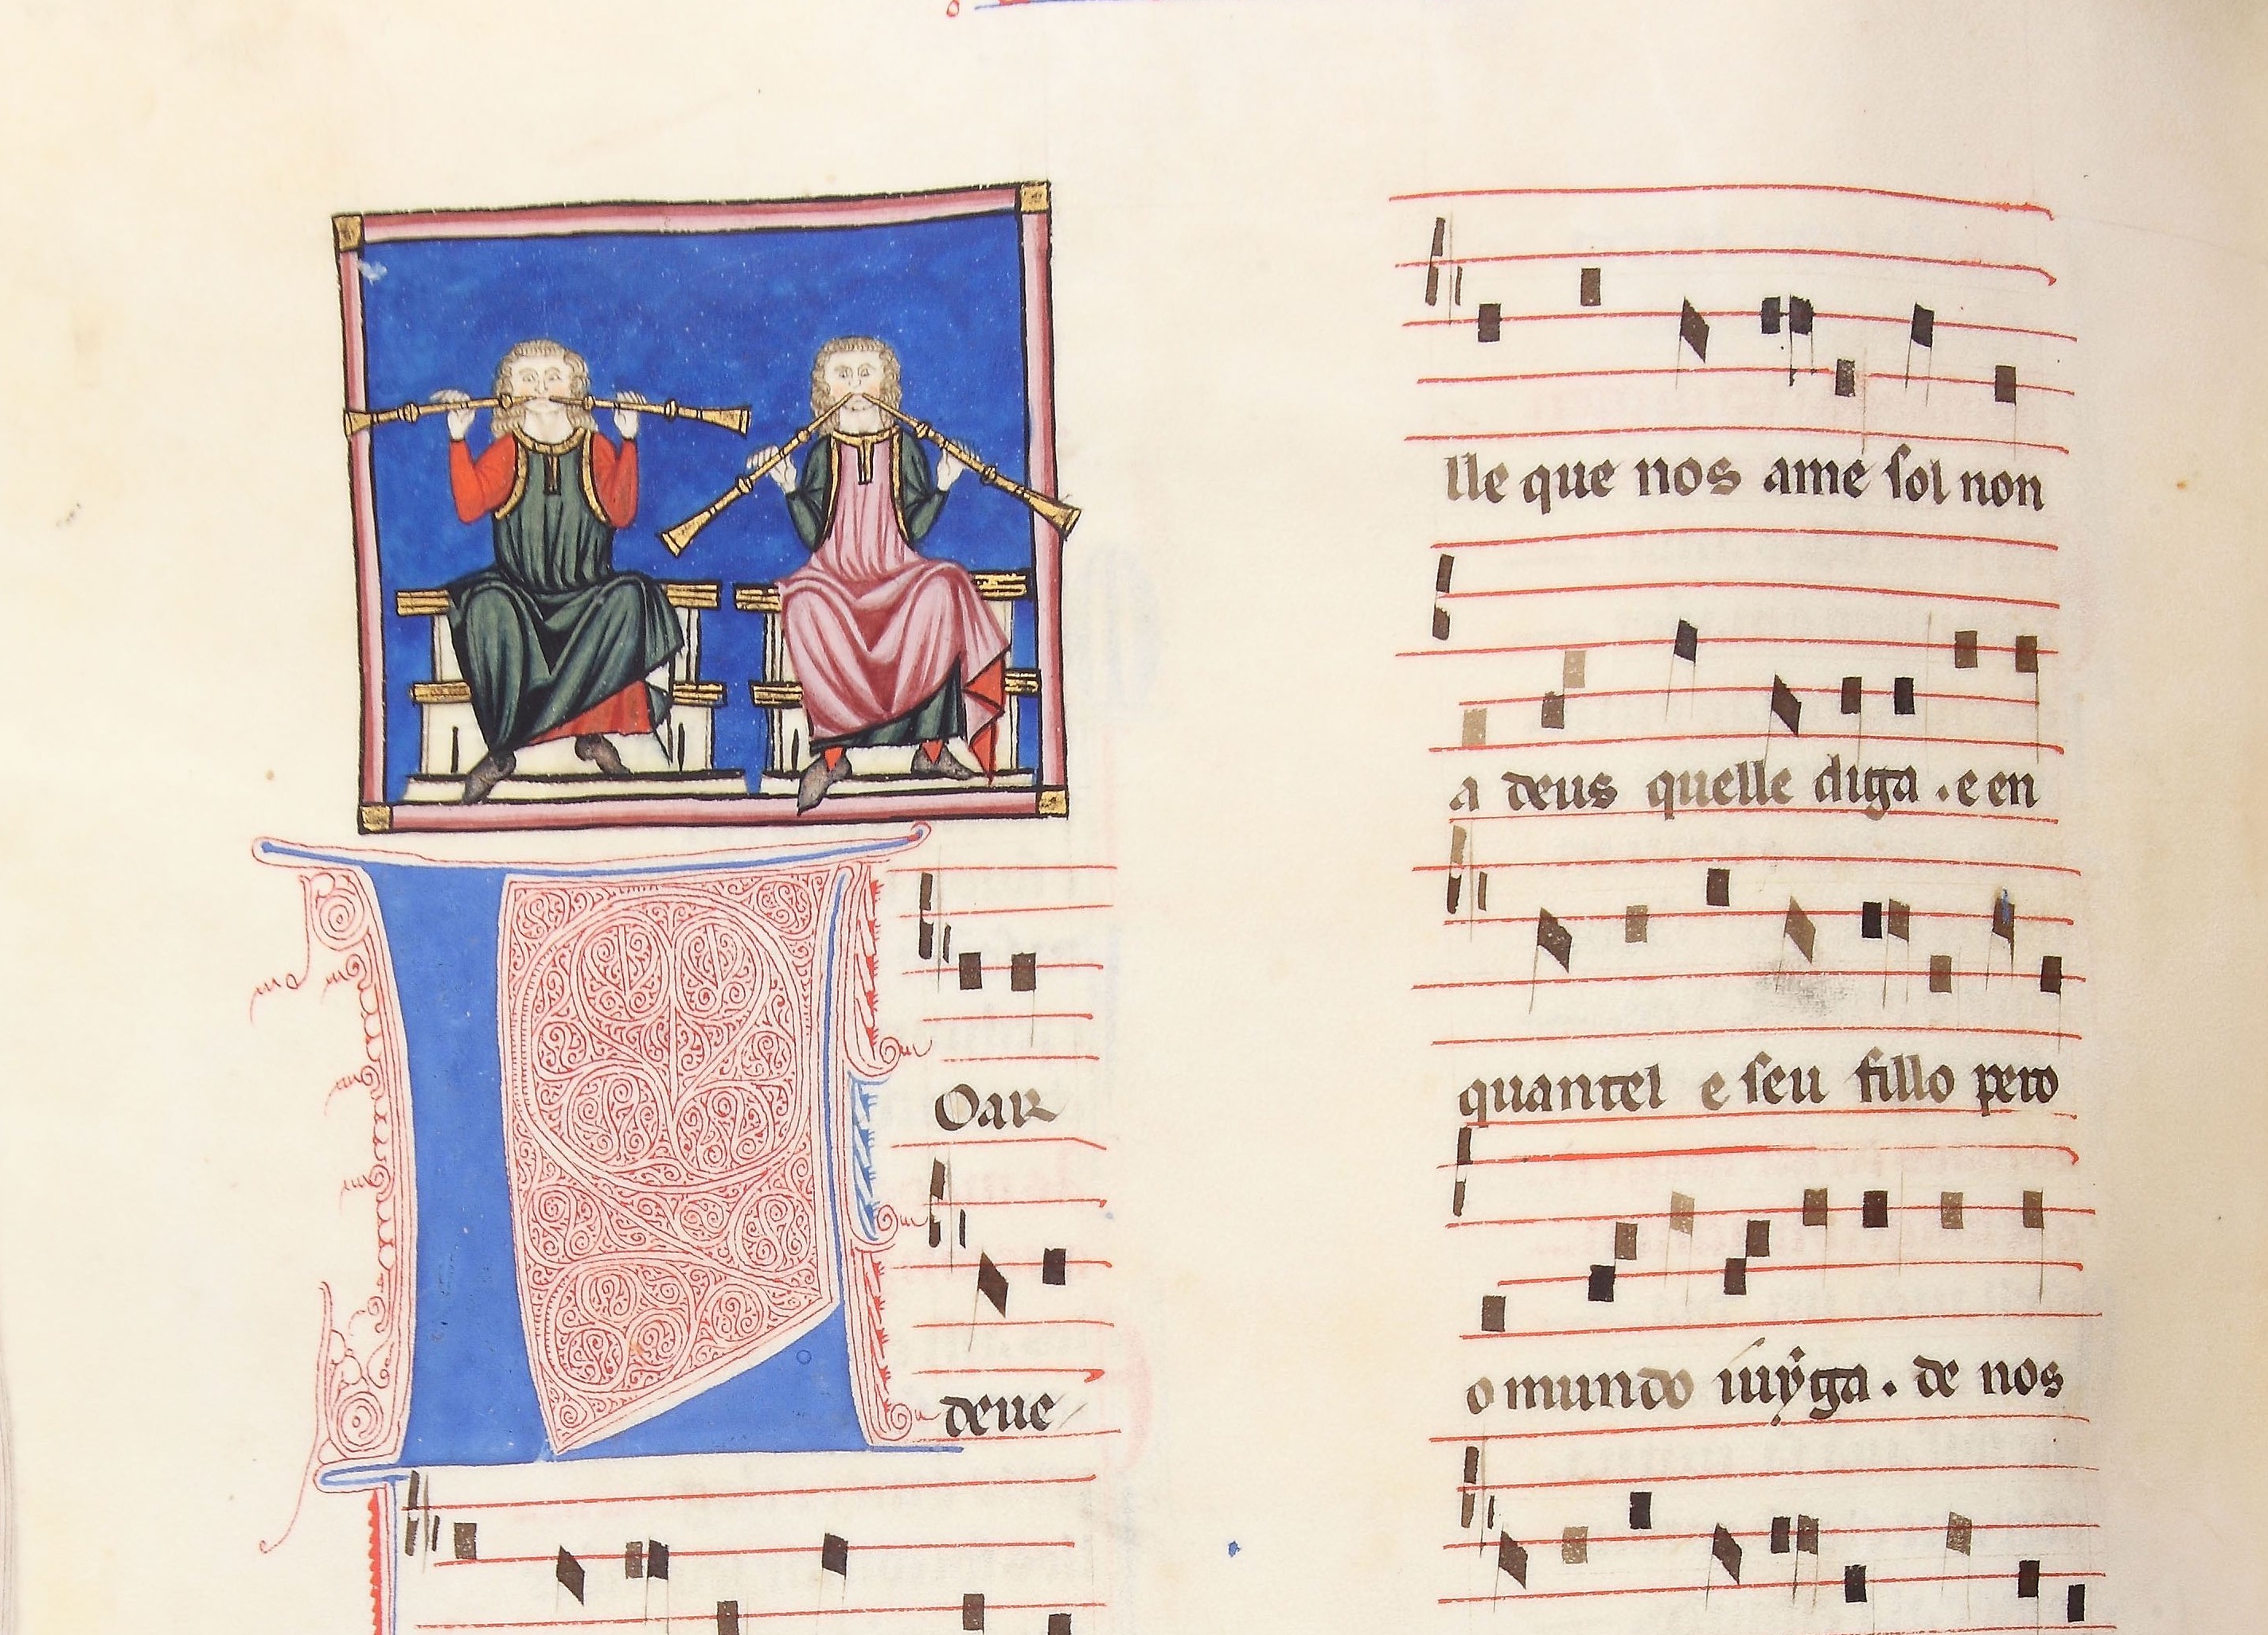 L
Oar
deue
lle que nos ame sol non
a deus quelle diga . e en
quantel e seu fillo pero
o mundo iuyga . de nos